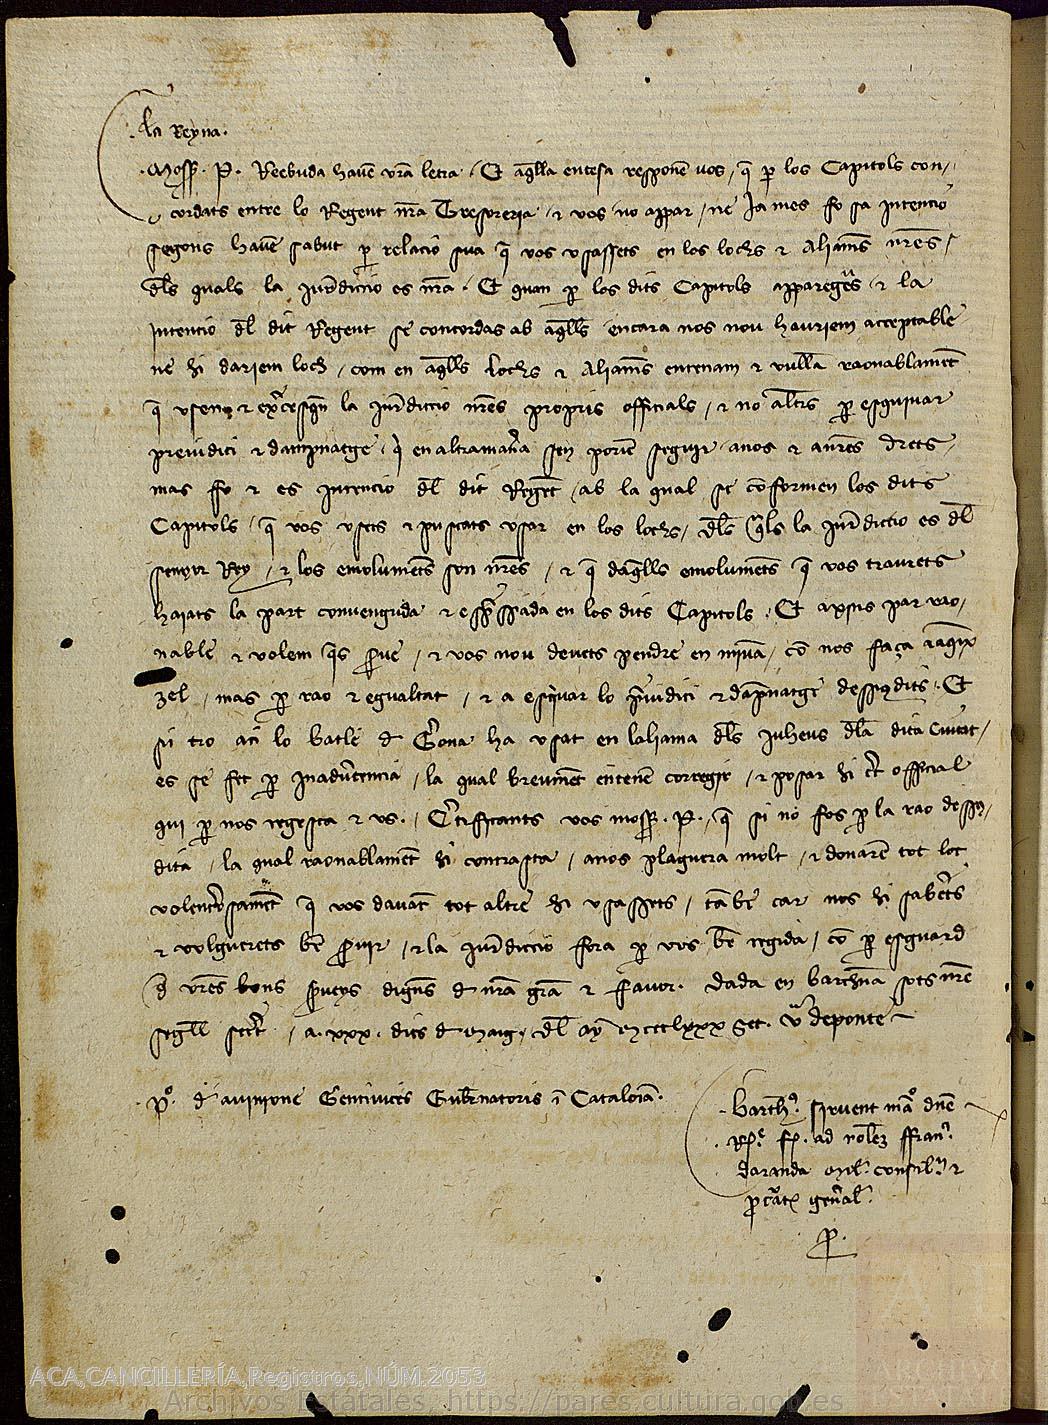 La Reyna.
Mossen P. Reebuda havem vra letra. Et aqlla entesa responem vos, q p los Capitols con-
cordats entre lo Regent nra Tresoreria, e vos no appar, ne james fo sa intencio
segons havem sabut p relacio sua q vos usassets en los lochs e Aliames nres,
dls quals la jurdiccio es nra. Et quan p los dits Capitols apparegues, e la
Intencio dl dit Regent se concordas ab aqlls encara nos nou hauriem acceptable
ne hi dariem loch, com en aqlls lochs e Aliames entenam e vullam raonablament
q usen e exercesquen la jurdiccio nres propris officials, e no altres p esquivar
prejudici e dampnatge, q en altra manera sen porien seguir a nos e a nres drets,
mas fo e es intencio dl dit Regent, ab la qual se conformen los dits
Capitols, q vos usets e puscats usar en los lochs, dls qls la jurdiccio es dl
senyor Rey, e los emoluments son nres, e q daqlls emoluments q vos traurets
haiats la part convenguda e expressada en los dits Capitols. Et axins par rao-
nable e volem qs serve, e vos nou devets pendre en minva, com nos faça a aquix
zel, mas p rao e egualtat, e a esquivar lo prejudici e dampnatge dessusdits. Et
si tro aci lo batle d Gerona ha usat en laliama dls juheus dla dita Ciutat,
es se fet p inadvertencia, la qual breument entenem corregir, e posar hi cert official
qui p nos regesca e us. Certificants vos mossen P. q si no fos p la rao dessus-
dita, la qual raonablament hi contrasta, a nos plaguera molt, e donarem tot loc
volenterosament q vos davant tot altre hi usassets, tambe car nos hi sabets
e volguerets be servir, e la jurdiccio fora p vos be regida, com p esguard
d vres bons serveys dignes d nra gra e favor. Dada en Barchna sots nre
segell secret, a xxx. dies d Maig, dl any Mccclxxx Set. de ponte
Po. d avinione Gentivices Gubernatoris in Catalonia.
Barthus. sirvent mandato dne
Re. fc. ad relacionem ffranci.
daranda mil. consil. e
pcurat genal.
P.
ACA,CANCILLERÍA,Registros,NÚM.2053
Archivos Estatales, https://pares.cultura.gob.es